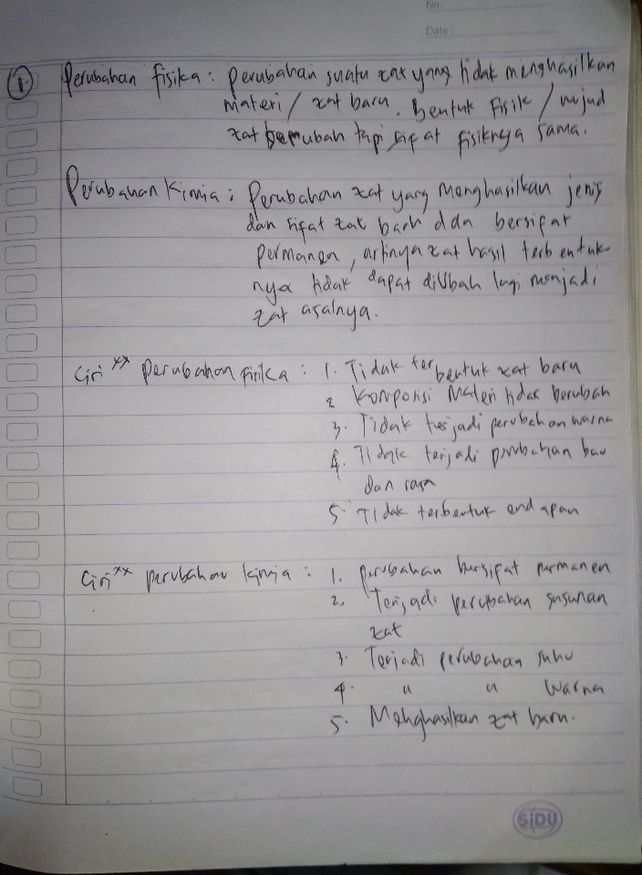 No.
Date :
① Perubahan fisika : perubahan suatu zat yang tidak menghasilkan
materi / zat baru. Bentuk fisik / wujud
zat berubah tapi sifat fisiknya sama.
Perubahan Kimia : Perubahan zat yang menghasilkan jenis
dan sifat zat baru dan bersifat
permanen, artinya zat hasil terbentuk-
nya tidak dapat diubah lagi menjadi
zat asalnya.
Ciri ** perubahan fisika : 1. Tidak terbentuk zat baru
2 Komposisi Materi tidak berubah
3. Tidak terjadi perubahan warna
4. Tidak terjadi perubahan bau
dan rasa
5. Tidak terbentuk endapan
Ciri ** perubahan kimia : 1. perubahan bersifat permanen
2. Terjadi perubahan susunan
zat
3. Terjadi perubahan suhu
4. " " Warna
5. Menghasilkan zat baru.
SIDU